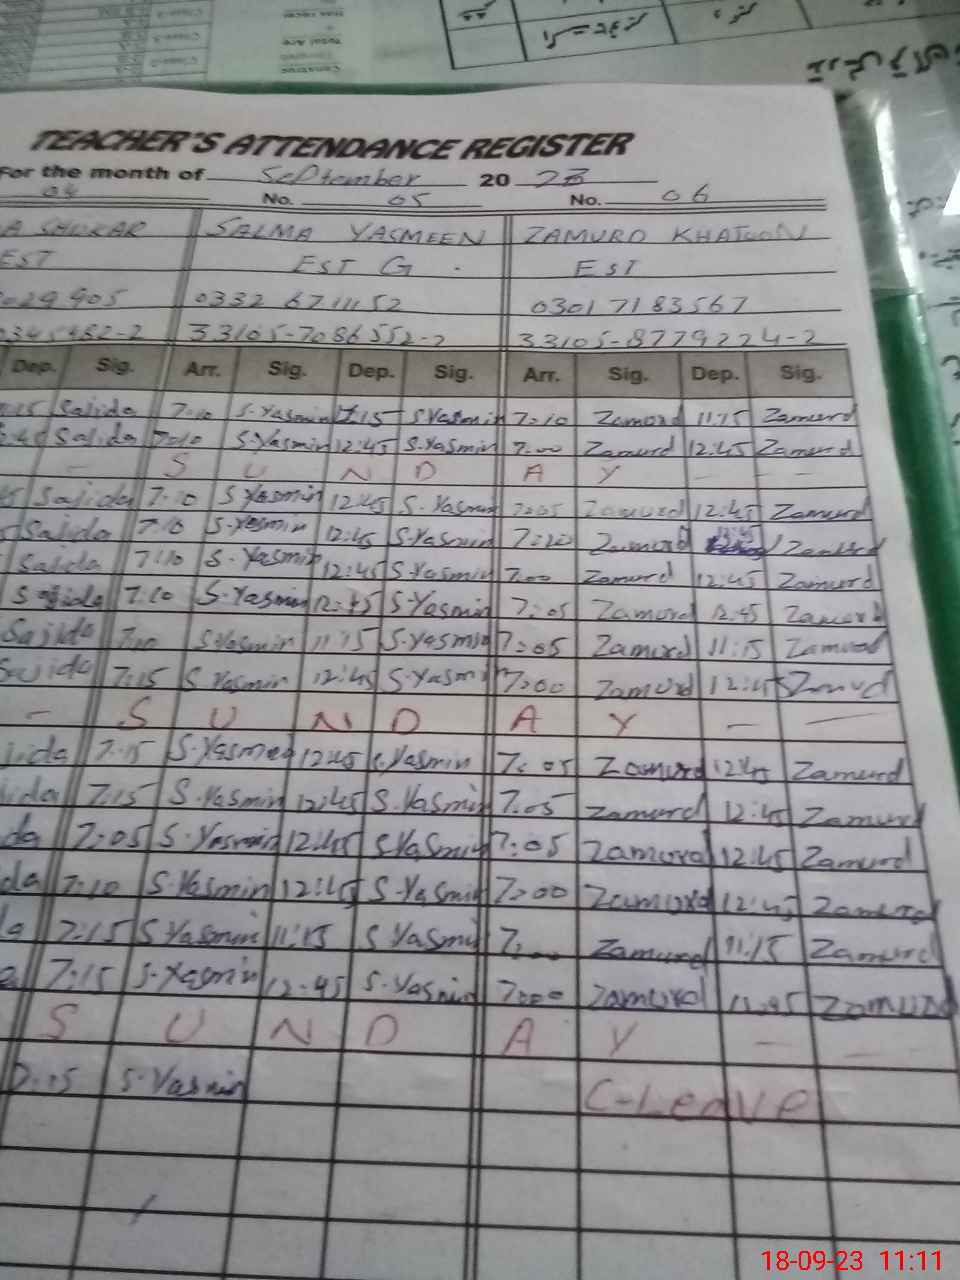 TEACHER'S ATTENDANCE REGISTER
For the month of September 20 23
04 No. 05 No. 06
A SHUKAR SALMA YASMEEN ZAMURD KHATOON
EST EST G. EST
29905 0332 6711152 03017183567
345482-2 33105-7086552-2 33105-8779224-2
Dep. Sig. Arr. Sig. Dep. Sig. Arr. Sig. Dep. Sig.
:15 Sajida 7:10 S.Yasmin 11:15 S.Yasmin 7:10 Zamurd 11:15 Zamurd
:45 Sajida 7:10 S.Yasmin 12:45 S.Yasmin 7:00 Zamurd 12:45 Zamurd
- S U N D A Y - -
Sajida 7:10 S Yasmin 12:45 S. Yasmin 7:05 Zamurd 12:45 Zamurd
Sajida 7:10 S.Yasmin 12:45 S.Yasmin 7:10 Zamurd Zamurd
Sajida 7:10 S.Yasmin 12:45 S.Yasmin 7:00 Zamurd 12:45 Zamurd
Sajida 7:10 S.Yasmin 12:45 S.Yasmin 7:05 Zamurd 12:45 Zamurd
Sajida 7:10 S.Yasmin 11:15 S.Yasmin 7:05 Zamurd 11:15 Zamurd
Sajida 7:15 S.Yasmin 12:45 S.Yasmin 7:00 Zamurd 12:45 Zamurd
- S U N D A Y - -
jida 7:15 S.Yasmeen 12:45 S.Yasmin 7:05 Zamurd 12:45 Zamurd
ida 7:15 S.Yasmin 12:45 S.Yasmin 7:05 Zamurd 12:45 Zamurd
da 7:05 S.Yasmin 12:45 S.Yasmin 7:05 Zamurd 12:45 Zamurd
da 7:10 S.Yasmin 12:45 S.Yasmin 7:00 Zamurd 12:45 Zamurd
a 7:15 S Yasmin 11:15 S Yasmin Zamurd 11:15 Zamurd
a 7:15 S.Yasmin 12:45 S.Yasmin 7:00 Zamurd 11:45 Zamurd
S U N D A Y - -
S.Yasmin C-Leave
18-09-23 11:11